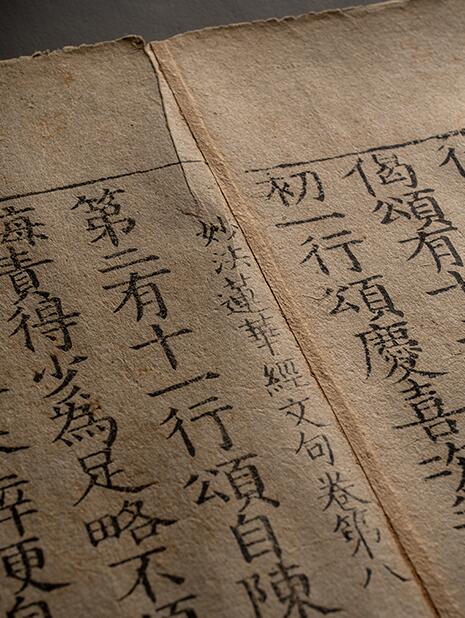 偈頌有十
初一行頌慶喜次
妙法蓮華經文句卷第八
第二有十一行頌自陳
悔責得少為足略不
更